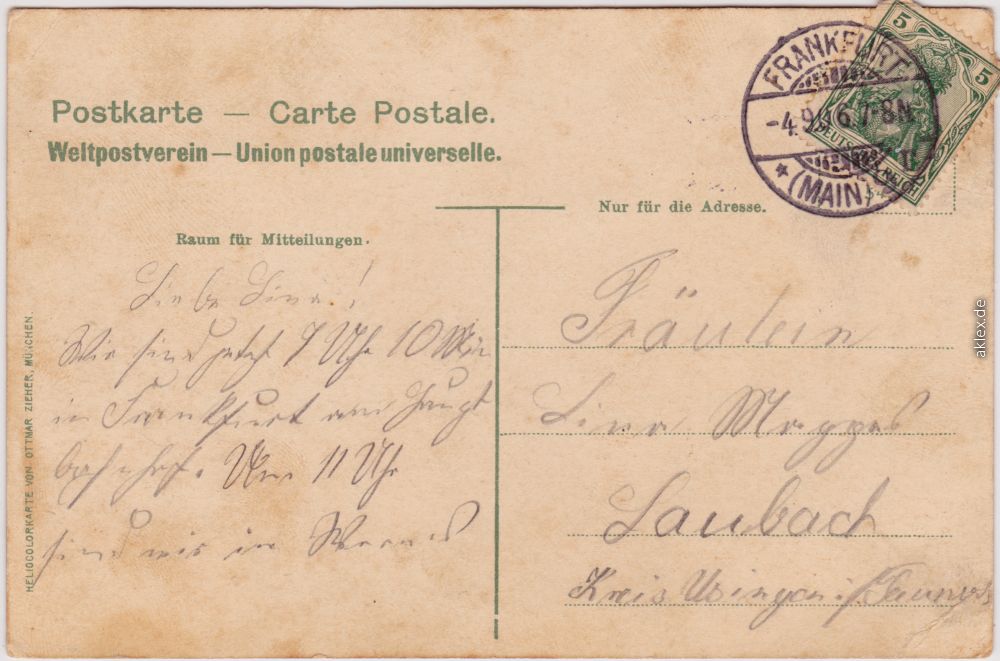 Postkarte — Carte Postale.
Weltpostverein — Union postale universelle.
5
5
DEUTSCHES REICH
FRANKFURT
-4.9. 6.7-8N.
* (MAIN)
Nur für die Adresse.
Raum für Mitteilungen.
Liebe Lina!
Wir sind jetzt 7 Uhr 10 Min
in Frankfurt am Haupt
bahnhof. Um 11 Uhr
sind wir in
Fräulein
Lina
Laubach
Kreis Usingen i/Taunus
HELIOCOLORKARTE VON OTTMAR ZIEHER, MÜNCHEN.
aklex.de